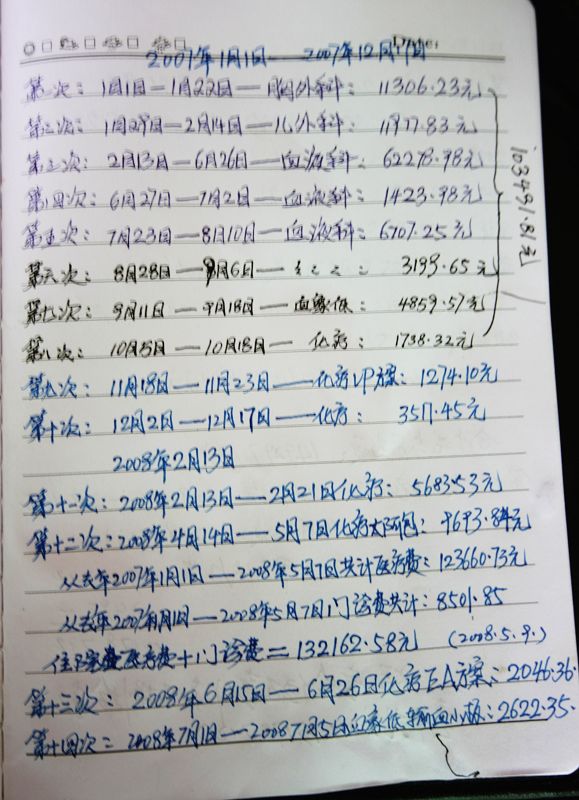 2007年1月1日——2007年12月17日
第一次：1月1日—1月22日—胸外科：11306.23元
第二次：1月29日—2月14日—儿外科：11977.83元
第三次：2月13日—6月26日—血液科：62278.98元
第四次：6月27日—7月2日—血液科：1423.98元
第五次：7月23日—8月10日—血液科：6707.25元
第六次：8月28日—9月6日—：3199.65元
第七次：9月11日—9月18日—血象低：4859.57元
第八次：10月5日—10月18日—化疗：1738.32元
103491.81元
第九次：11月18日——11月23日——化疗VP方案：1274.10元
第十次：12月2日——12月17日——化疗：3517.45元
2008年2月13日
第十一次：2008年2月13日——2月21日化疗：5683.53元
第十二次：2008年4月14日——5月7日化疗：9693.84元
从去年2007年1月1日——2008年5月7日共计医疗费：123660.73元
从去年2007年1月1日——2008年5月7日门诊费共计：8501.85
住院医疗费+门诊费=132162.58元（2008.5.9.）
第十三次：2008年6月15日——6月26日化疗EA方案：2046.36.
第十四次：2008年7月1日——2008 7月5日血象低输血小板：2622.35.